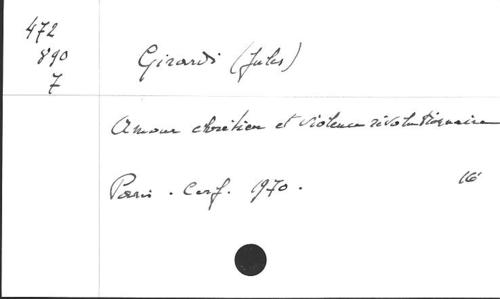 472
890
7
Girardi (Jules)
Amour chrétien et violence révolutionnaire
Paris. Cerf. 1970. 16°